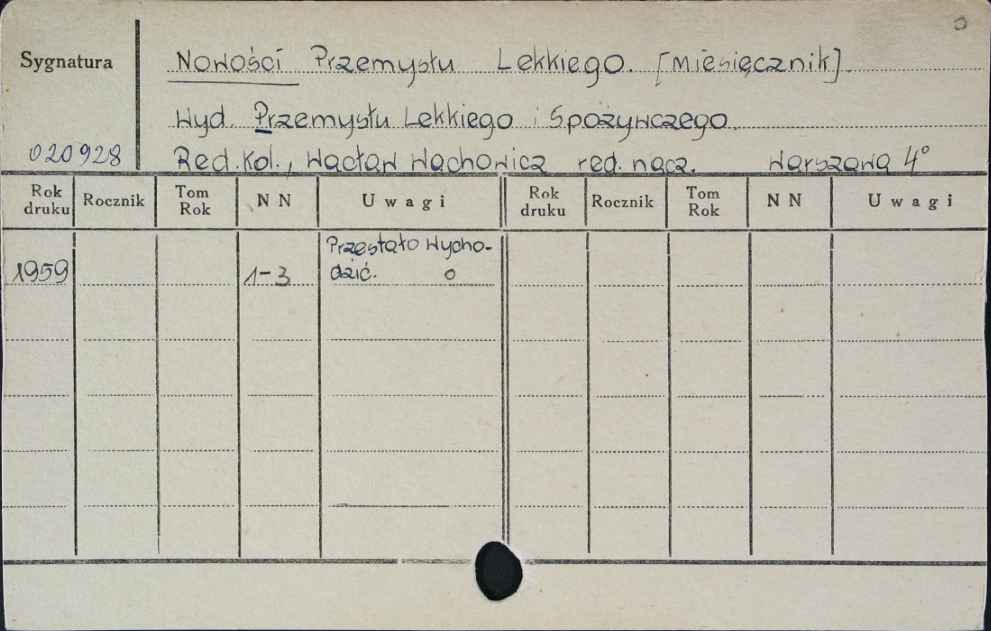 Sygnatura
Nowości Przemysłu Lekkiego. [Miesięcznik].
Wyd. Przemysłu Lekkiego i Spożywczego.
020928 Red. Kol., Wacław Wachowicz red. nacz. Warszawa 4°
Rok druku Rocznik Tom Rok N N Uwagi Rok druku Rocznik Tom Rok N N Uwagi
Przestało wycho-
1959 1-3 dzić. o